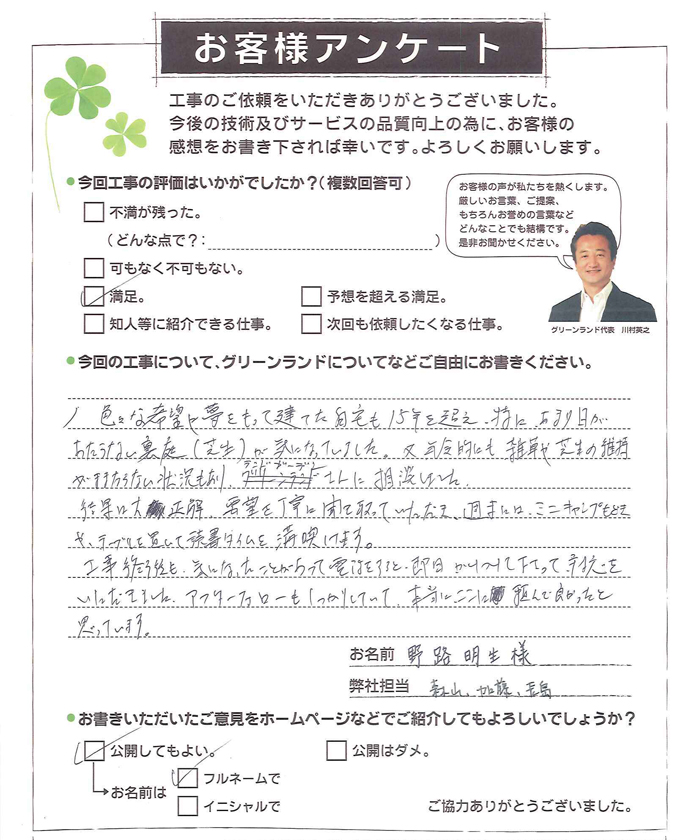 お客様アンケート
工事のご依頼をいただきありがとうございました。
今後の技術及びサービスの品質向上の為に、お客様の
感想をお書き下されば幸いです。よろしくお願いします。
●今回工事の評価はいかがでしたか？（複数回答可）
不満が残った。
（どんな点で？：　）
可もなく不可もない。
満足。
予想を超える満足。
知人等に紹介できる仕事。
次回も依頼したくなる仕事。
お客様の声が私たちを熱くします。
厳しいお言葉、ご提案、
もちろんお誉めの言葉など
どんなことでも結構です。
是非お聞かせください。
グリーンランド代表　川村英之
●今回の工事について、グリーンランドについてなどご自由にお書きください。
色々な希望や夢をもって建てた自宅も15年を超え、特に、あまり日が
あたらない裏庭（芝生）が気になっていました。又年令的にも雑草や芝生の維持
がままならない状況もあり、さんに相談しました。
結果は大正解、要望を丁寧に聞き取っていただき、週末には、ミニキャンプもどき
や、テーブルを置いて読書タイムを満喫してます。
工事終了後も、気になったことがあって電話をすると、即日かけつけて下さって、対応を
いただきました。アフターフォローもしっかりしていて、本当にここに頼んで良かったと
思っています。
お名前　野路明生様
弊社担当　森山、加藤、長島
●お書きいただいたご意見をホームページなどでご紹介してもよろしいでしょうか？
公開してもよい。
公開はダメ。
お名前は
フルネームで
イニシャルで
ご協力ありがとうございました。